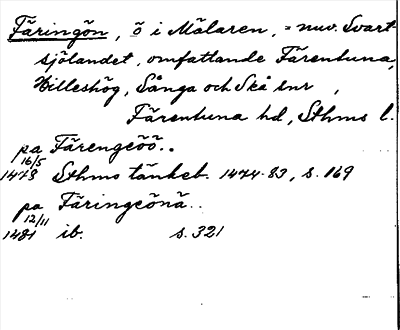 Färingön, ö i Mälaren, = nuv. Svart-
sjölandet, omfattande Färentuna,
Hilleshög, Sånga och Skå snr,
Färentuna hd, Sthms l.
pa Färengöö..
16/5
1478 Sthms tänkeb. 1474-83, s. 169
pa Färingeönä..
12/11
1481 ib. s. 321